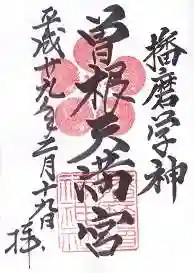 播磨学神
曽根天満宮
平成廿九年三月十九日
拝